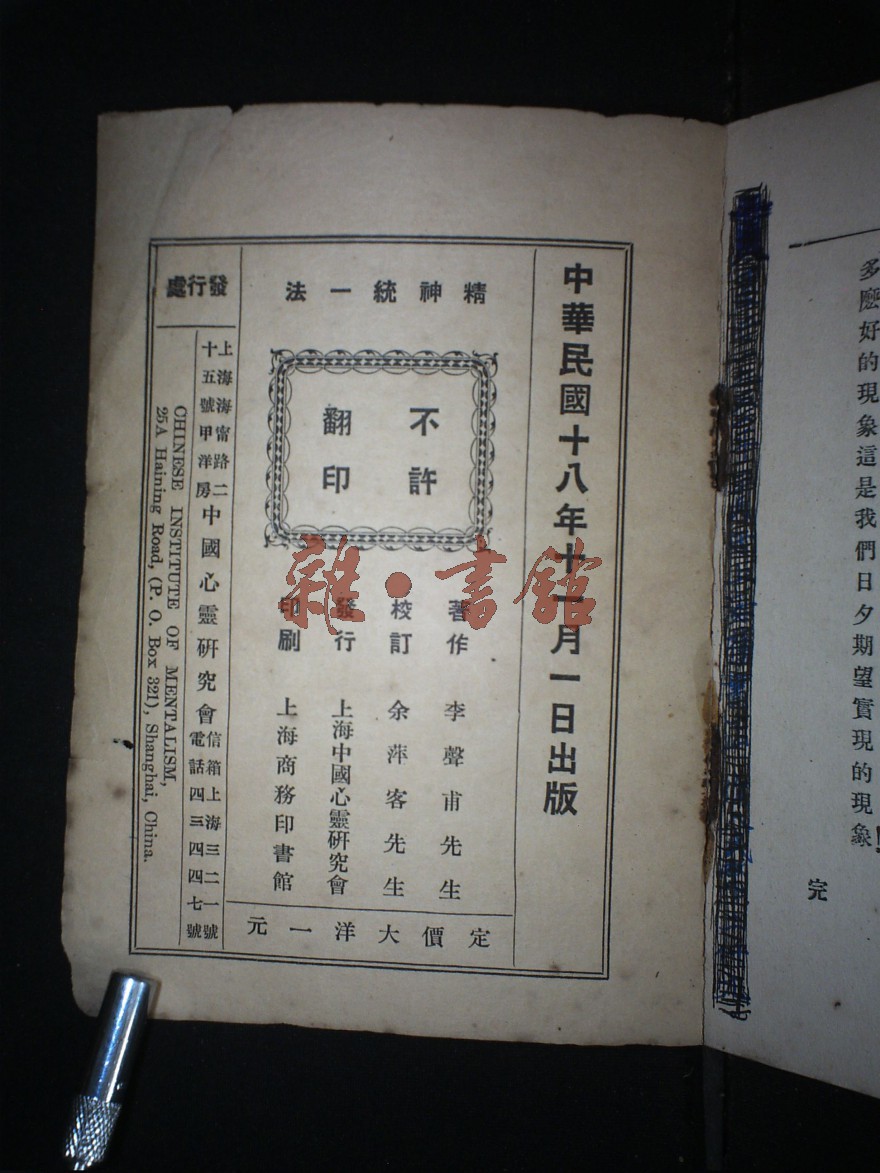 多麽好的現象這是我們日夕期望實現的現象
完
中華民國十八年十一月一日出版
精神統一法
不許
翻印
著作 李聲甫先生
校訂 余萍客先生
發行 上海中國心靈硏究會
印刷 上海商務印書館
定價大洋一元
發行處
上海海甯路二
十五號甲洋房
中國心靈硏究會
信箱上海三二一號
電話四三四四七號
CHINESE INSTITUTE OF MENTALISM,
25A Haining Road, (P. O. Box 321), Shanghai, China.
雜·書館